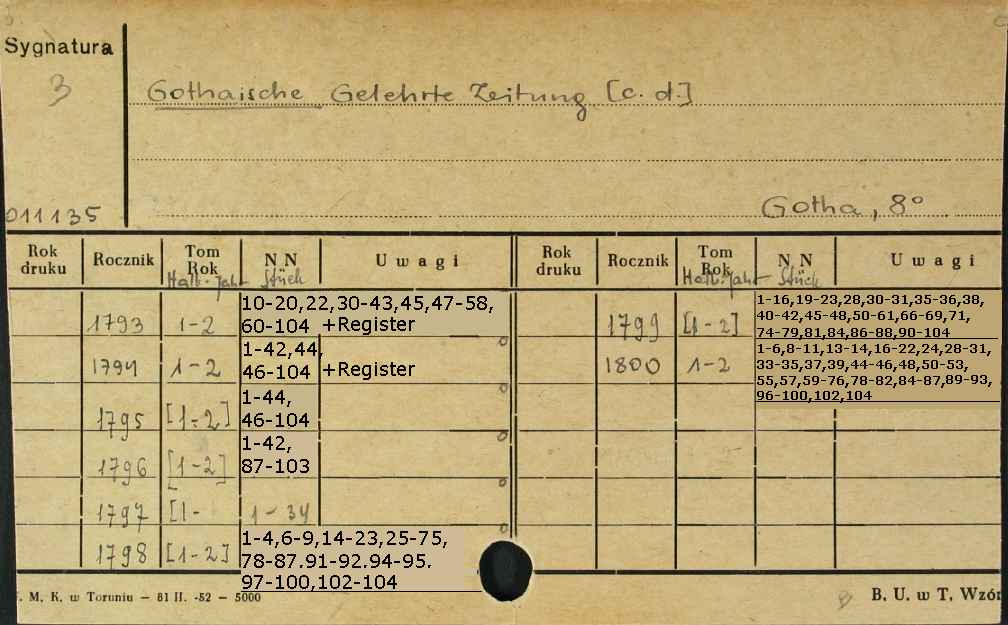 Sygnatura
3
Gothaische Gelehrte Zeitung [c. d.]
011135
Gotha, 8°
Rok druku Rocznik Tom Rok NN Uwagi Rok druku Rocznik Tom Rok NN Uwagi
Halb-Jahr Stück Halb-Jahr Stück
1793 1-2 10-20,22,30-43,45,47-58,
60-104 +Register
1794 1-2 1-42,44,
46-104 +Register
1795 [1-2] 1-44,
46-104
1796 [1-2] 1-42,
87-103
1797 [1- 1-34
1798 [1-2] 1-4,6-9,14-23,25-75,
78-87.91-92.94-95.
97-100,102-104
1799 [1-2] 1-16,19-23,28,30-31,35-36,38,
40-42,45-48,50-61,66-69,71,
74-79,81,84,86-88,90-104
1800 1-2 1-6,8-11,13-14,16-22,24,28-31,
33-35,37,39,44-46,48,50-53,
55,57,59-76,78-82,84-87,89-93,
96-100,102,104
M. K. w Toruniu — 81 II. -52 — 5000
B. U. w T. Wzór